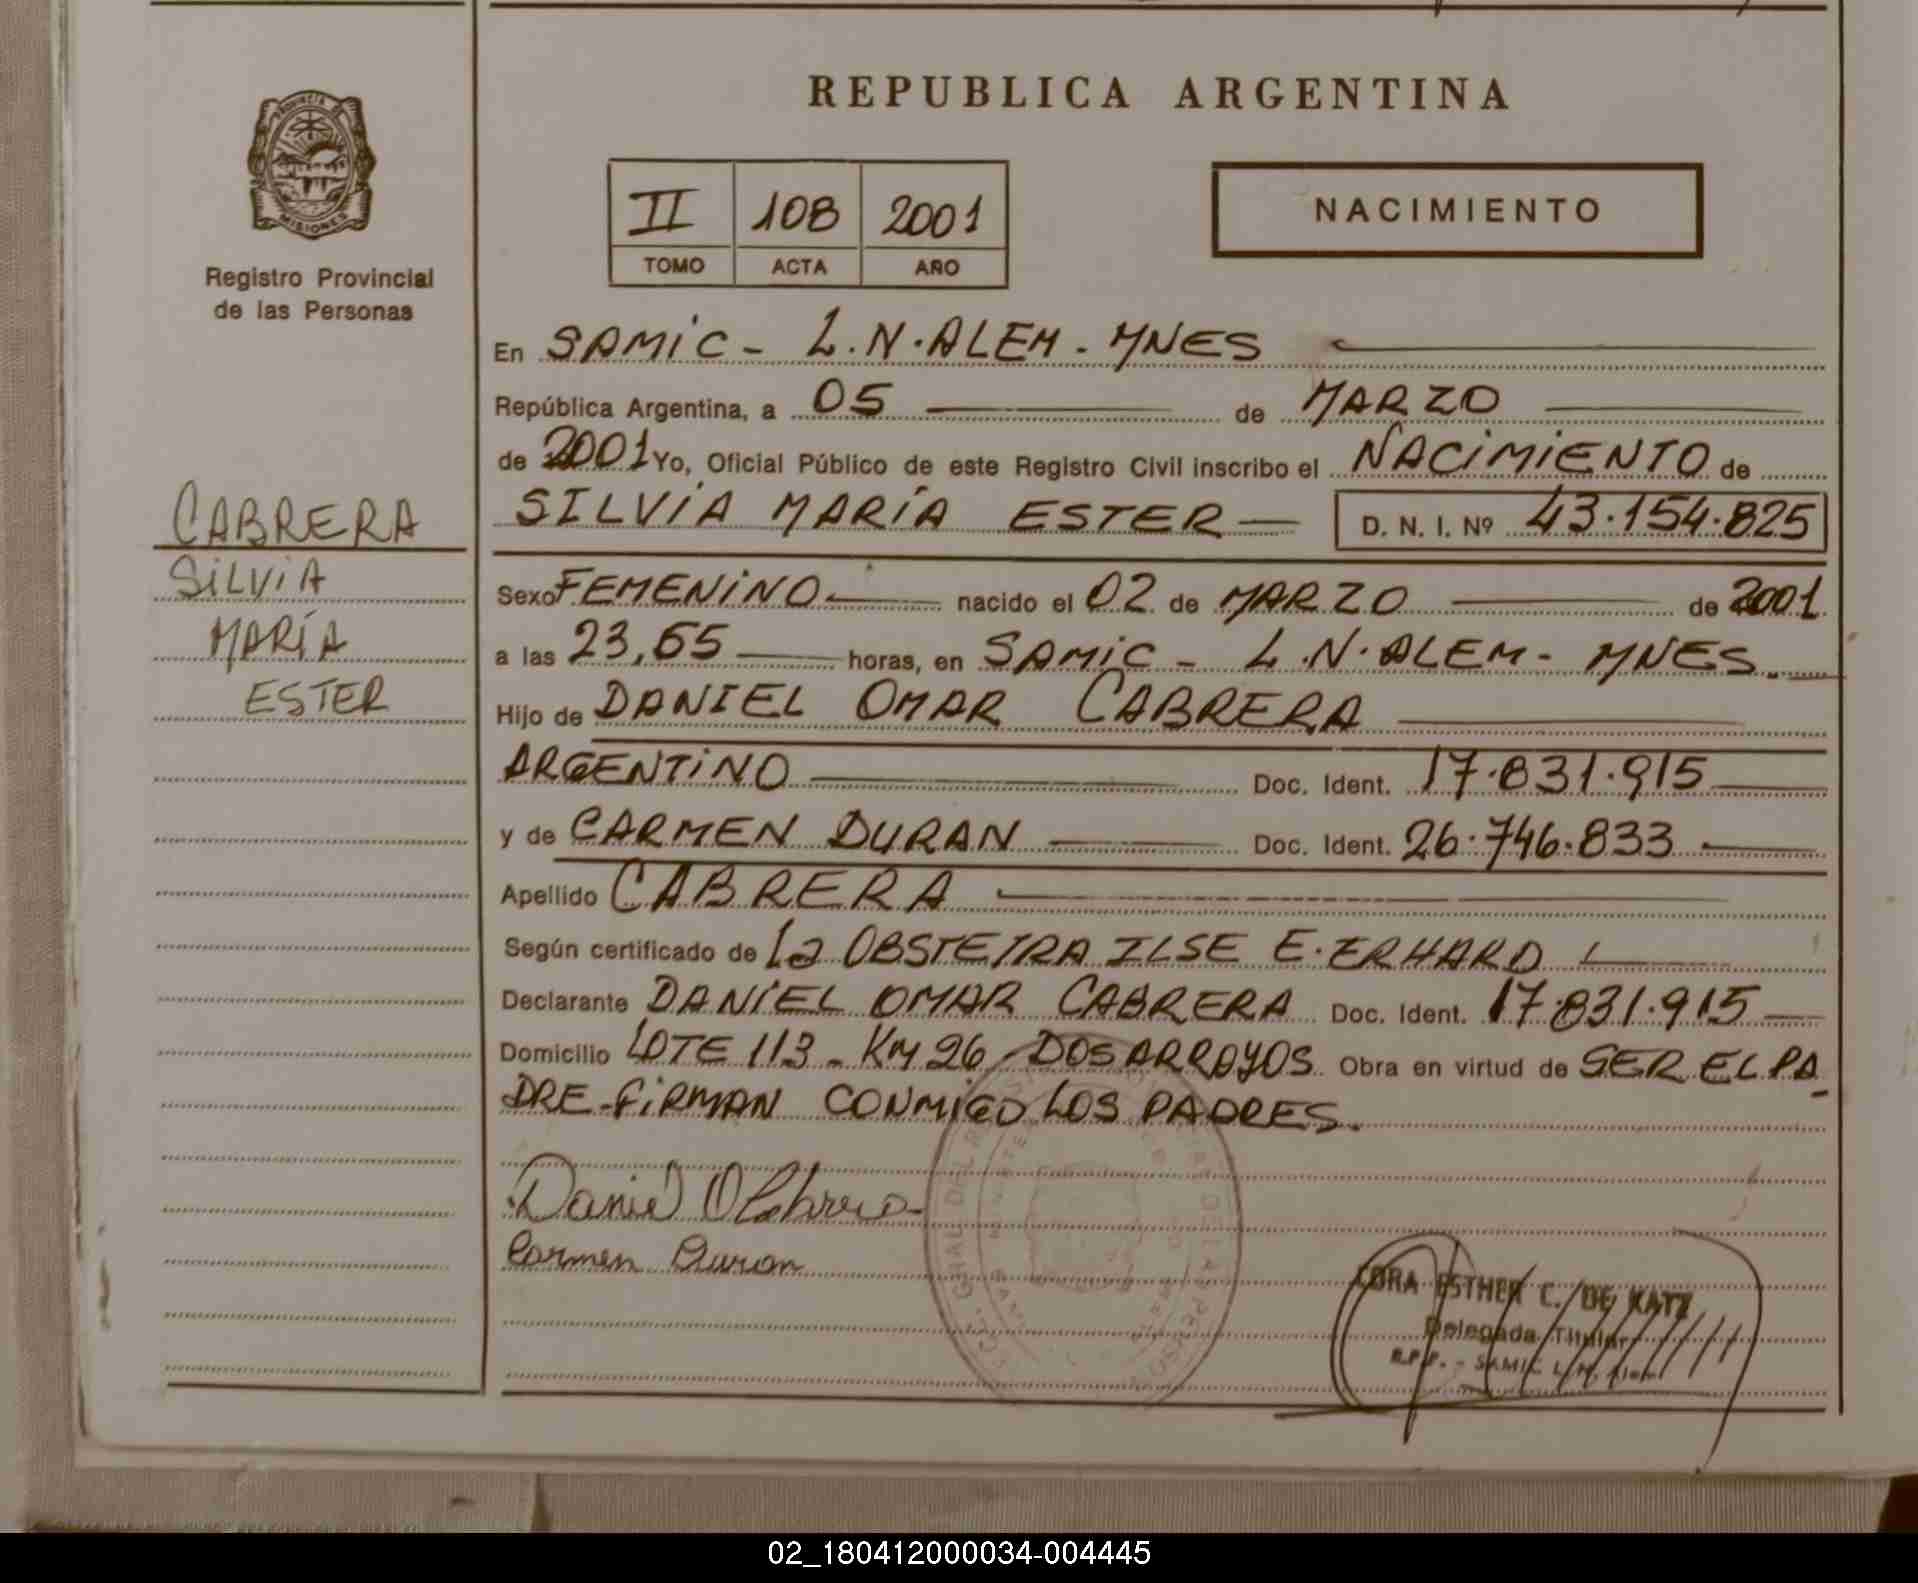 REPUBLICA ARGENTINA
PROVINCIA DE
MISIONES
Registro Provincial
de las Personas
II 108 2001
TOMO ACTA AÑO
NACIMIENTO
CABRERA
SILVIA
MARÍA
ESTER
En SAMIC - L.N. ALEM - MNES
República Argentina, a 05 de MARZO
de 2001 Yo, Oficial Público de este Registro Civil inscribo el NACIMIENTO de
SILVIA MARÍA ESTER D. N. I. Nº 43.154.825
Sexo FEMENINO nacido el 02 de MARZO de 2001
a las 23,55 horas, en SAMIC - L.N. ALEM - MNES
Hijo de DANIEL OMAR CABRERA
ARGENTINO Doc. Ident. 17.831.915
y de CARMEN DURAN Doc. Ident. 26.746.833
Apellido CABRERA
Según certificado de La OBSTETRA ILSE E. ERHARD
Declarante DANIEL OMAR CABRERA Doc. Ident. 17.831.915
Domicilio LOTE 113 - KM 26 - DOS ARROYOS Obra en virtud de SER EL PA
DRE - FIRMAN CONMIGO LOS PADRES.
Daniel O Cabrera
Carmen Duran
CORA ESTHER C. DE KATZ
Delegada Titular
R.P.P. - SAMIC L.N. Alem
02_180412000034-004445